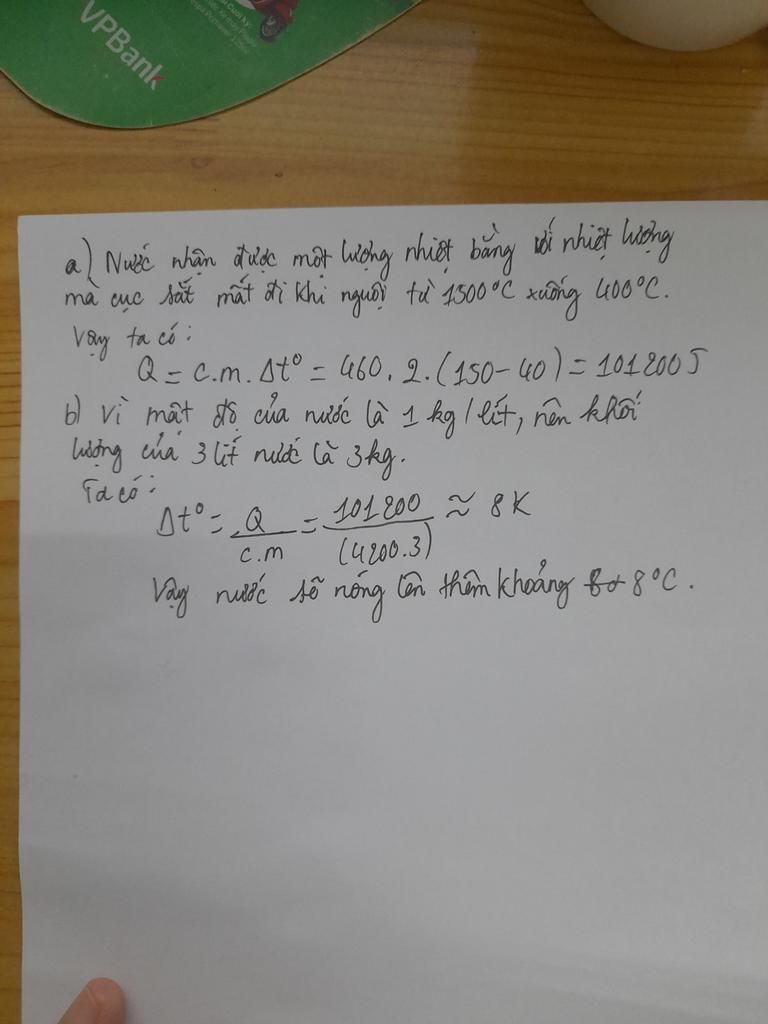 VPBank
a) Nước nhận được một lượng nhiệt bằng với nhiệt lượng
mà cục sắt mất đi khi nguội từ 1500°C xuống 400°C.
Vậy ta có:
Q = c.m.Δt° = 460.2.(150-40) = 101200J
b) Vì mật độ của nước là 1 kg/lít, nên khối
lượng của 3 lít nước là 3kg.
Ta có:
Δt° = Q/c.m = 101200/(4200.3) ≈ 8K
Vậy nước sẽ nóng lên thêm khoảng 8°C.